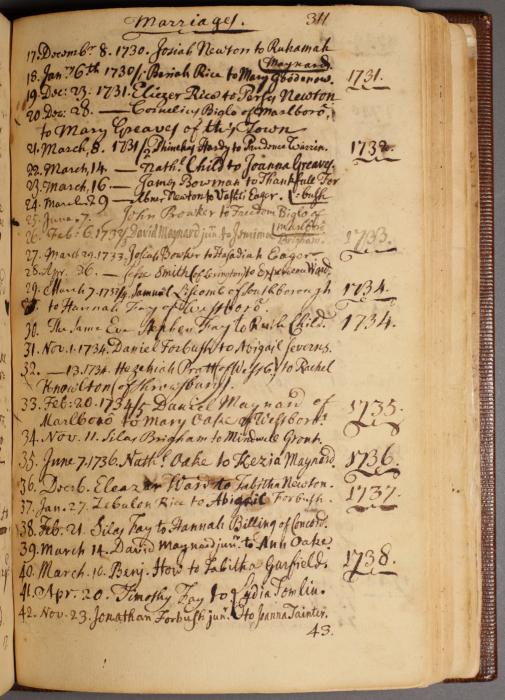 Marriages. 311
17. Decembr 8. 1730. Josiah Newton to Ruhamah
Maynard.
18. Jany 6th 1730/1. Beriah Rice to Mary Goodenow.
1731.
19. Dec: 23. 1731. Eliezer Rice to Persy Newton
20. Dec: 28. — Cornelius Biglo of Marlboro,
to Mary Greaves of this Town
21. March, 8. 1731/2 Phinehas Hardy to Prudence Warrin.
1732.
22. March, 14. — Nathl. Child to Joanna Greaves.
23. March, 16 — James Bowman to Thankfull For
bush
24. March 29 — Abner Newton to Vashti Eager.
25. June, 7. John Bowker to Freedom Biglo of
Marlboro
26. Feb: 6. 1732/3 David Maynard jun. to Jemima
Brigham.
1733.
27. March 29. 1733. Josiah Bowker to Hasadiah Eager
28. Apr. 26. — Smith (of Lexington) to Experience Ward.
29. March 7. 1733/4. Samuel Liscomb of Southborough
to Hannah Fay of Westboro.
1734.
30. The Same Eve Stephen Fay to Ruth Child.
1734.
31. Nov. 1. 1734. Daniel Forbush to Abigail Severns.
32. — 13. 1734. Hezekiah Pratt of Westboro to Rachel
Knowlton of Shrewsbury.
33. Feb: 20. 1734/5 Daniel Maynard of
Marlboro to Mary Oake of Westboro.
1735.
34. Nov. 11. Silas Brigham to Mindwell Grout.
35. June 7. 1736. Nathl. Oake to Kezia Maynard
1736
36. Decr 6. Eleazer Warr to Tabitha Newton.
37. Jan. 27. Zebulon Rice to Abigail Forbush.
1737.
38. Feb. 21. Silas Fay to Hannah Billing of Concord.
39. March 14. David Maynard junr. to Ann Oake
40. March. 16. Benj. How to Tabitha Garfield.
1738.
41. Apr. 20. Timothy Fay to Lydia Tomlin.
42. Nov. 23. Jonathan Forbush junr. to Joanna Tainter.
43.